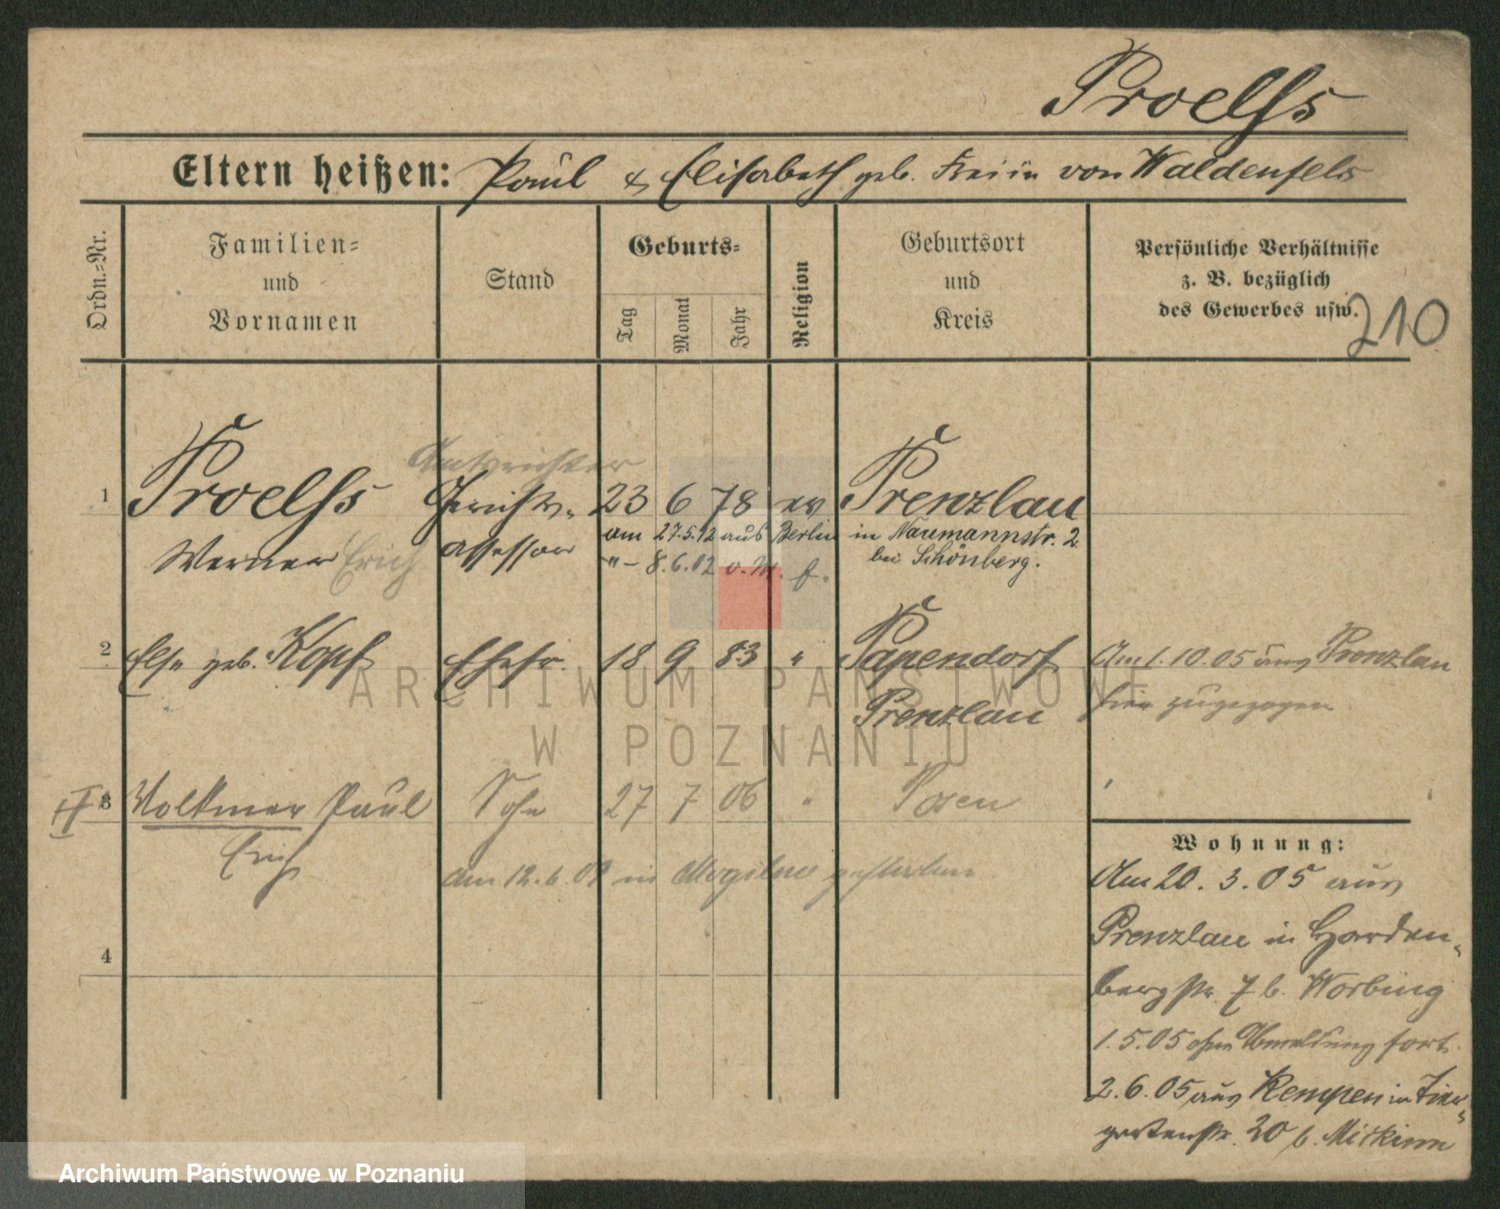 Proelß
Eltern heißen: Paul & Elisabeth geb. Freiin von Waldenfels
Ordn.=Nr.
Familien=
und
Vornamen
Stand
Geburts=
Tag
Monat
Jahr
Religion
Geburtsort
und
Kreis
Persönliche Verhältnisse
z. B. bezüglich
des Gewerbes usw.
210
Amtsrichter
1 Proelß Gerichts- 23 6 78 ev Prenzlau
Werner Erich assessor am 27.5.12 aus Berlin in Naumannstr. 2
8.6.12 bei Schönberg.
2 Else geb. Kopf Ehefr. 18 9 83 " Papendorf Am 1.10.05 aus Prenzlau
Prenzlau hier zugezogen
3 Volkmar Paul Sohn 27 7 06 " Posen
Erich
am 12.6.09 in Mogilno gestorben
4
Wohnung:
Am 20.3.05 aus
Prenzlau in Harden-
bergstr. 7 b. Worbing
1.5.05 ohne Abmeldung fort.
2.6.05 aus Kempen in Tier-
gartenstr. 20 b.
ARCHIWUM PAŃSTWOWE
W POZNANIU
Archiwum Państwowe w Poznaniu